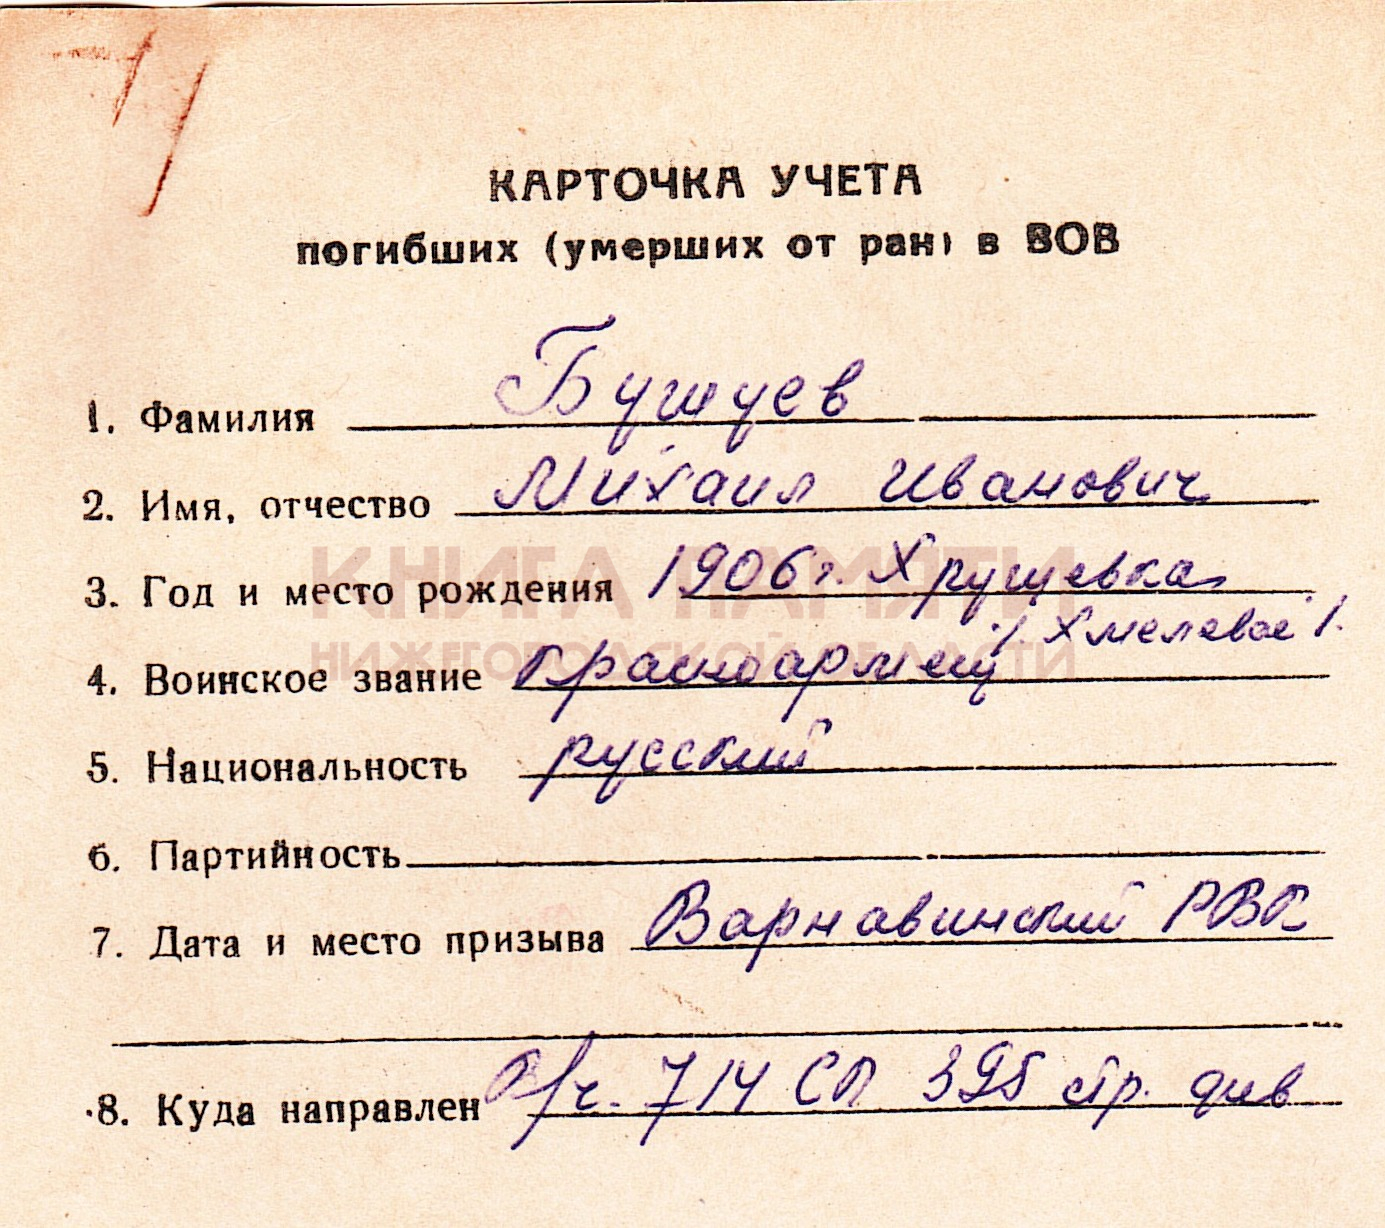 КАРТОЧКА УЧЕТА
погибших (умерших от ран) в ВОВ
1. Фамилия Бушуев
2. Имя, отчество Михаил Иванович
3. Год и место рождения 1906 г. Хрущевка
/ Хмелевое /.
4. Воинское звание красноармеец
5. Национальность русский
6. Партийность
7. Дата и место призыва Варнавинский РВК
8. Куда направлен В/ч. 714 СП 395 стр. див
КНИГА ПАМЯТИ
НИЖЕГОРОДСКОЙ ОБЛАСТИ